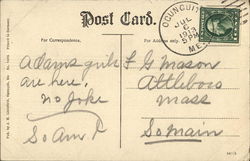 Post Card.
For Correspondence.
For Address only.
OGUNQUIT
JUL
6
1913
5 PM
ME.
Adams girls
are here.
no joke
So Am I
L G Mason
Attleboro
Mass
So main